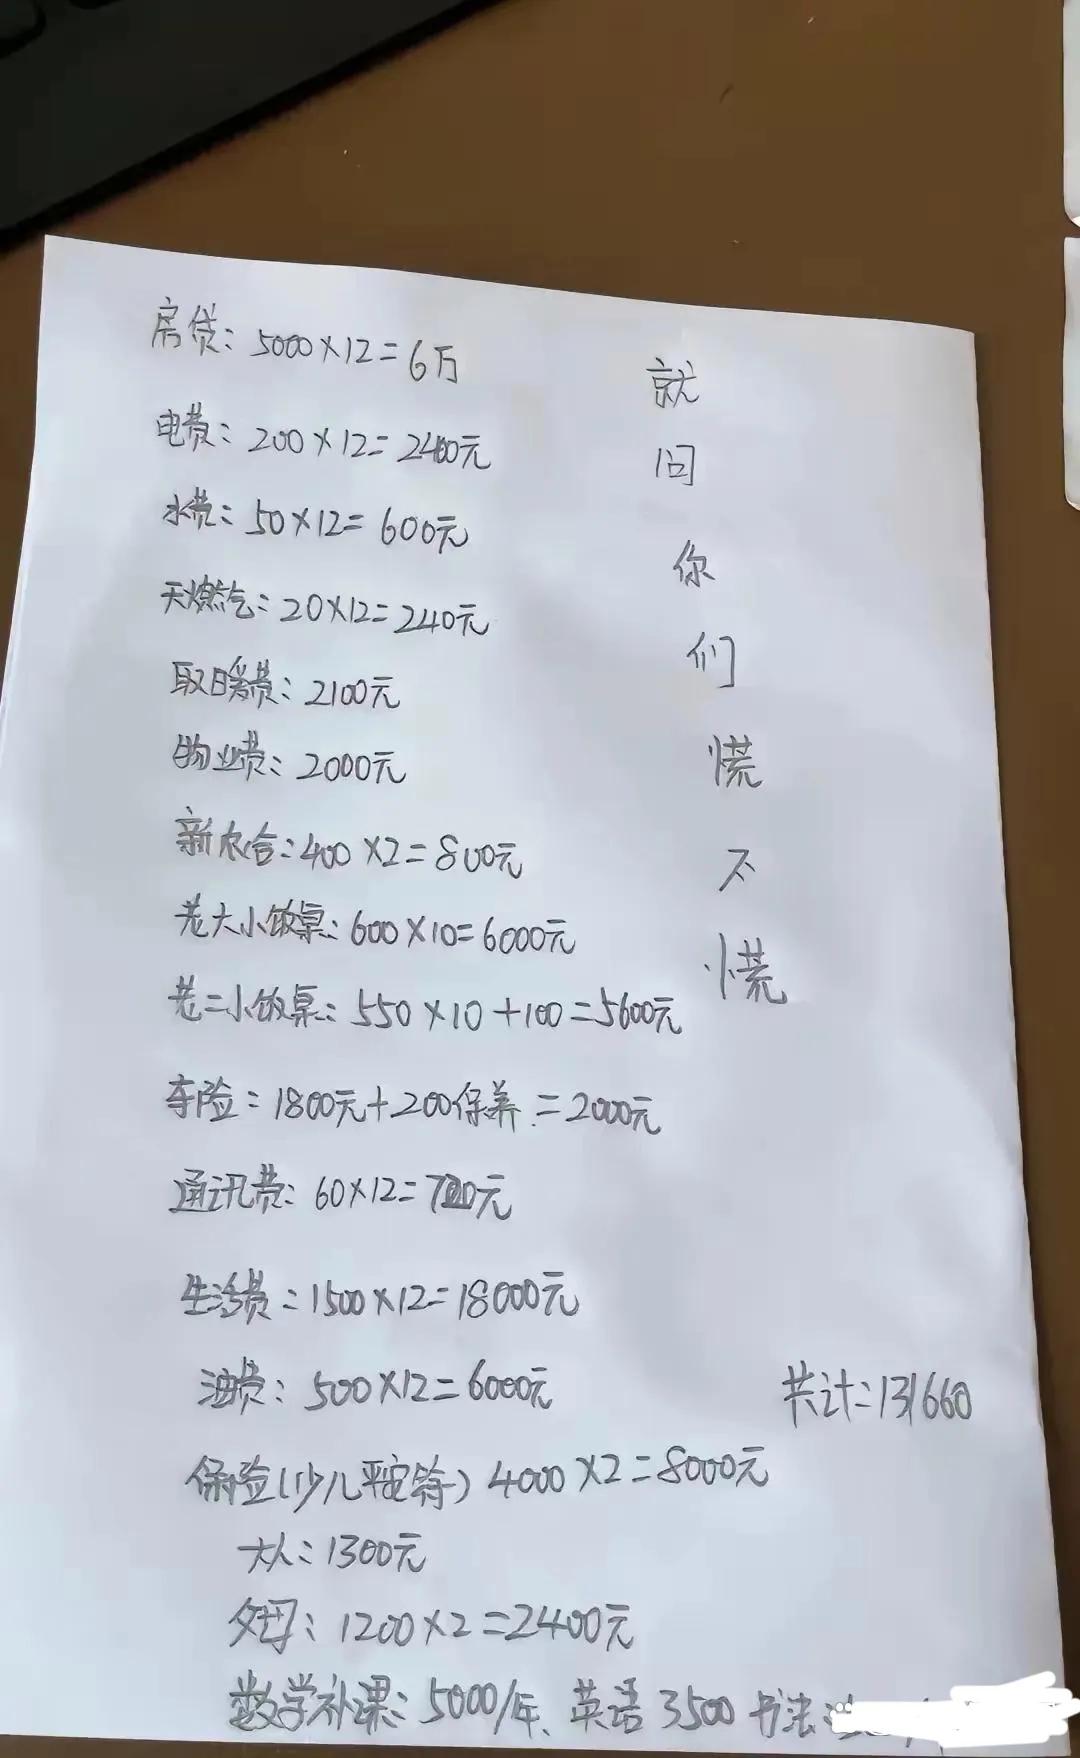 房贷：5000×12=6万
电费：200×12=2400元
水费：50×12=600元
天燃气：20×12=240元
取暖费：2100元
物业费：2000元
新农合：400×2=800元
老大小饭桌：600×10=6000元
老二小饭桌：550×10+100=5600元
车险：1800元+200保养=2000元
通讯费：60×12=720元
生活费：1500×12=18000元
油费：500×12=6000元
保险(少儿平安符) 4000×2=8000元
大人：1300元
父母：1200×2=2400元
数学补课：5000/年、英语3500 书法
就
问
你
们
慌
不
慌
共计：131660